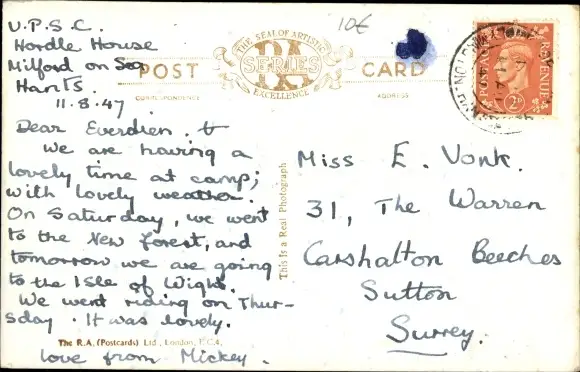 U.P.S.C.
Hordle House
Milford on Sea
Hants.
11.8.47.
10€
THE SEAL OF ARTISTIC
RA
SERIES
EXCELLENCE
POST CARD
CORRESPONDENCE
ADDRESS
POSTAGE
REVENUE
2D
Dear Everdien,
We are having a
lovely time at camp;
with lovely weather.
On Saturday, we went
to the New Forest, and
tomorrow we are going
to the Isle of Wight.
We went riding on Thur-
sday. It was lovely.
love from Mickey.
The R.A. (Postcards) Ltd., London, E.C.4.
This is a Real Photograph
Miss E. Vonk.
31, The Warren
Carshalton Beeches
Sutton
Surrey.